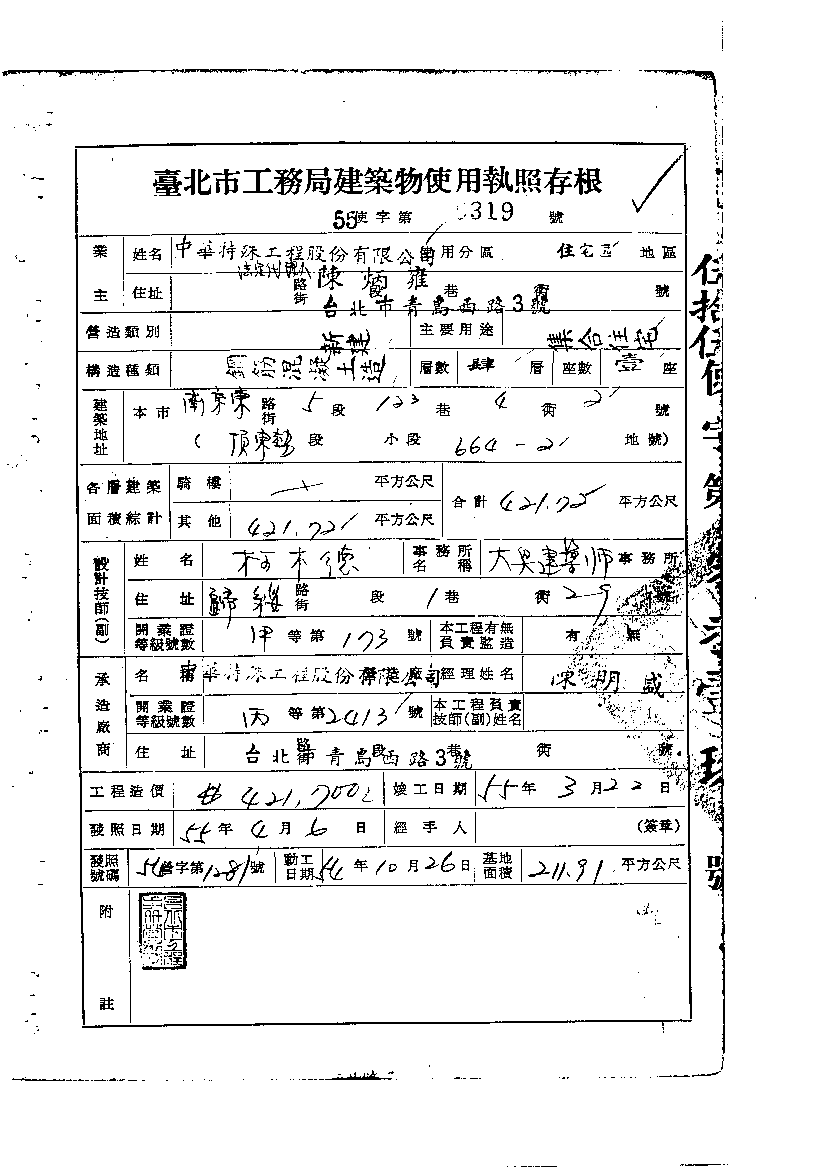 臺北市工務局建築物使用執照存根
55使字第 0319 號
業主 姓名 中華特殊工程股份有限公司 使用分區 住宅區 地區
法定代理人 陳炳雍
住址 路街 段 巷 街 號
台北市青島西路3號
營造類別 新建 主要用途 集合住宅
構造種類 鋼筋混凝土造 層數 肆 層 座數 壹 座
建築地址 本市 南京東 路街 5 段 123 巷 4 街 2 號
( 頂東勢 段 小段 664-2 地號)
各層建築面積綜計 騎樓 平方公尺 合計 421.72 平方公尺
其他 421.72 平方公尺
設計技師(副) 姓名 柯本德 事務所名稱 建築師事務所
住址 路街 段 1 巷 街 29 號
開業證等級號數 甲 等第 173 號 本工程有無負責監造 有 無
承造廠商 名稱 中華特殊工程股份有限公司 經理姓名 陳明盛
開業證等級號數 丙 等第 2413 號 本工程負責技師(副)姓名
住址 路街 段 巷 街 號
台北市青島西路3號
工程造價 # 421,700 竣工日期 55年 3月22日
發照日期 55年 4月 6日 經手人 (簽章)
發照號碼 54營字第1281號 動工日期 54年10月26日 基地面積 211.91 平方公尺
附註
伍拾伍使字第
號